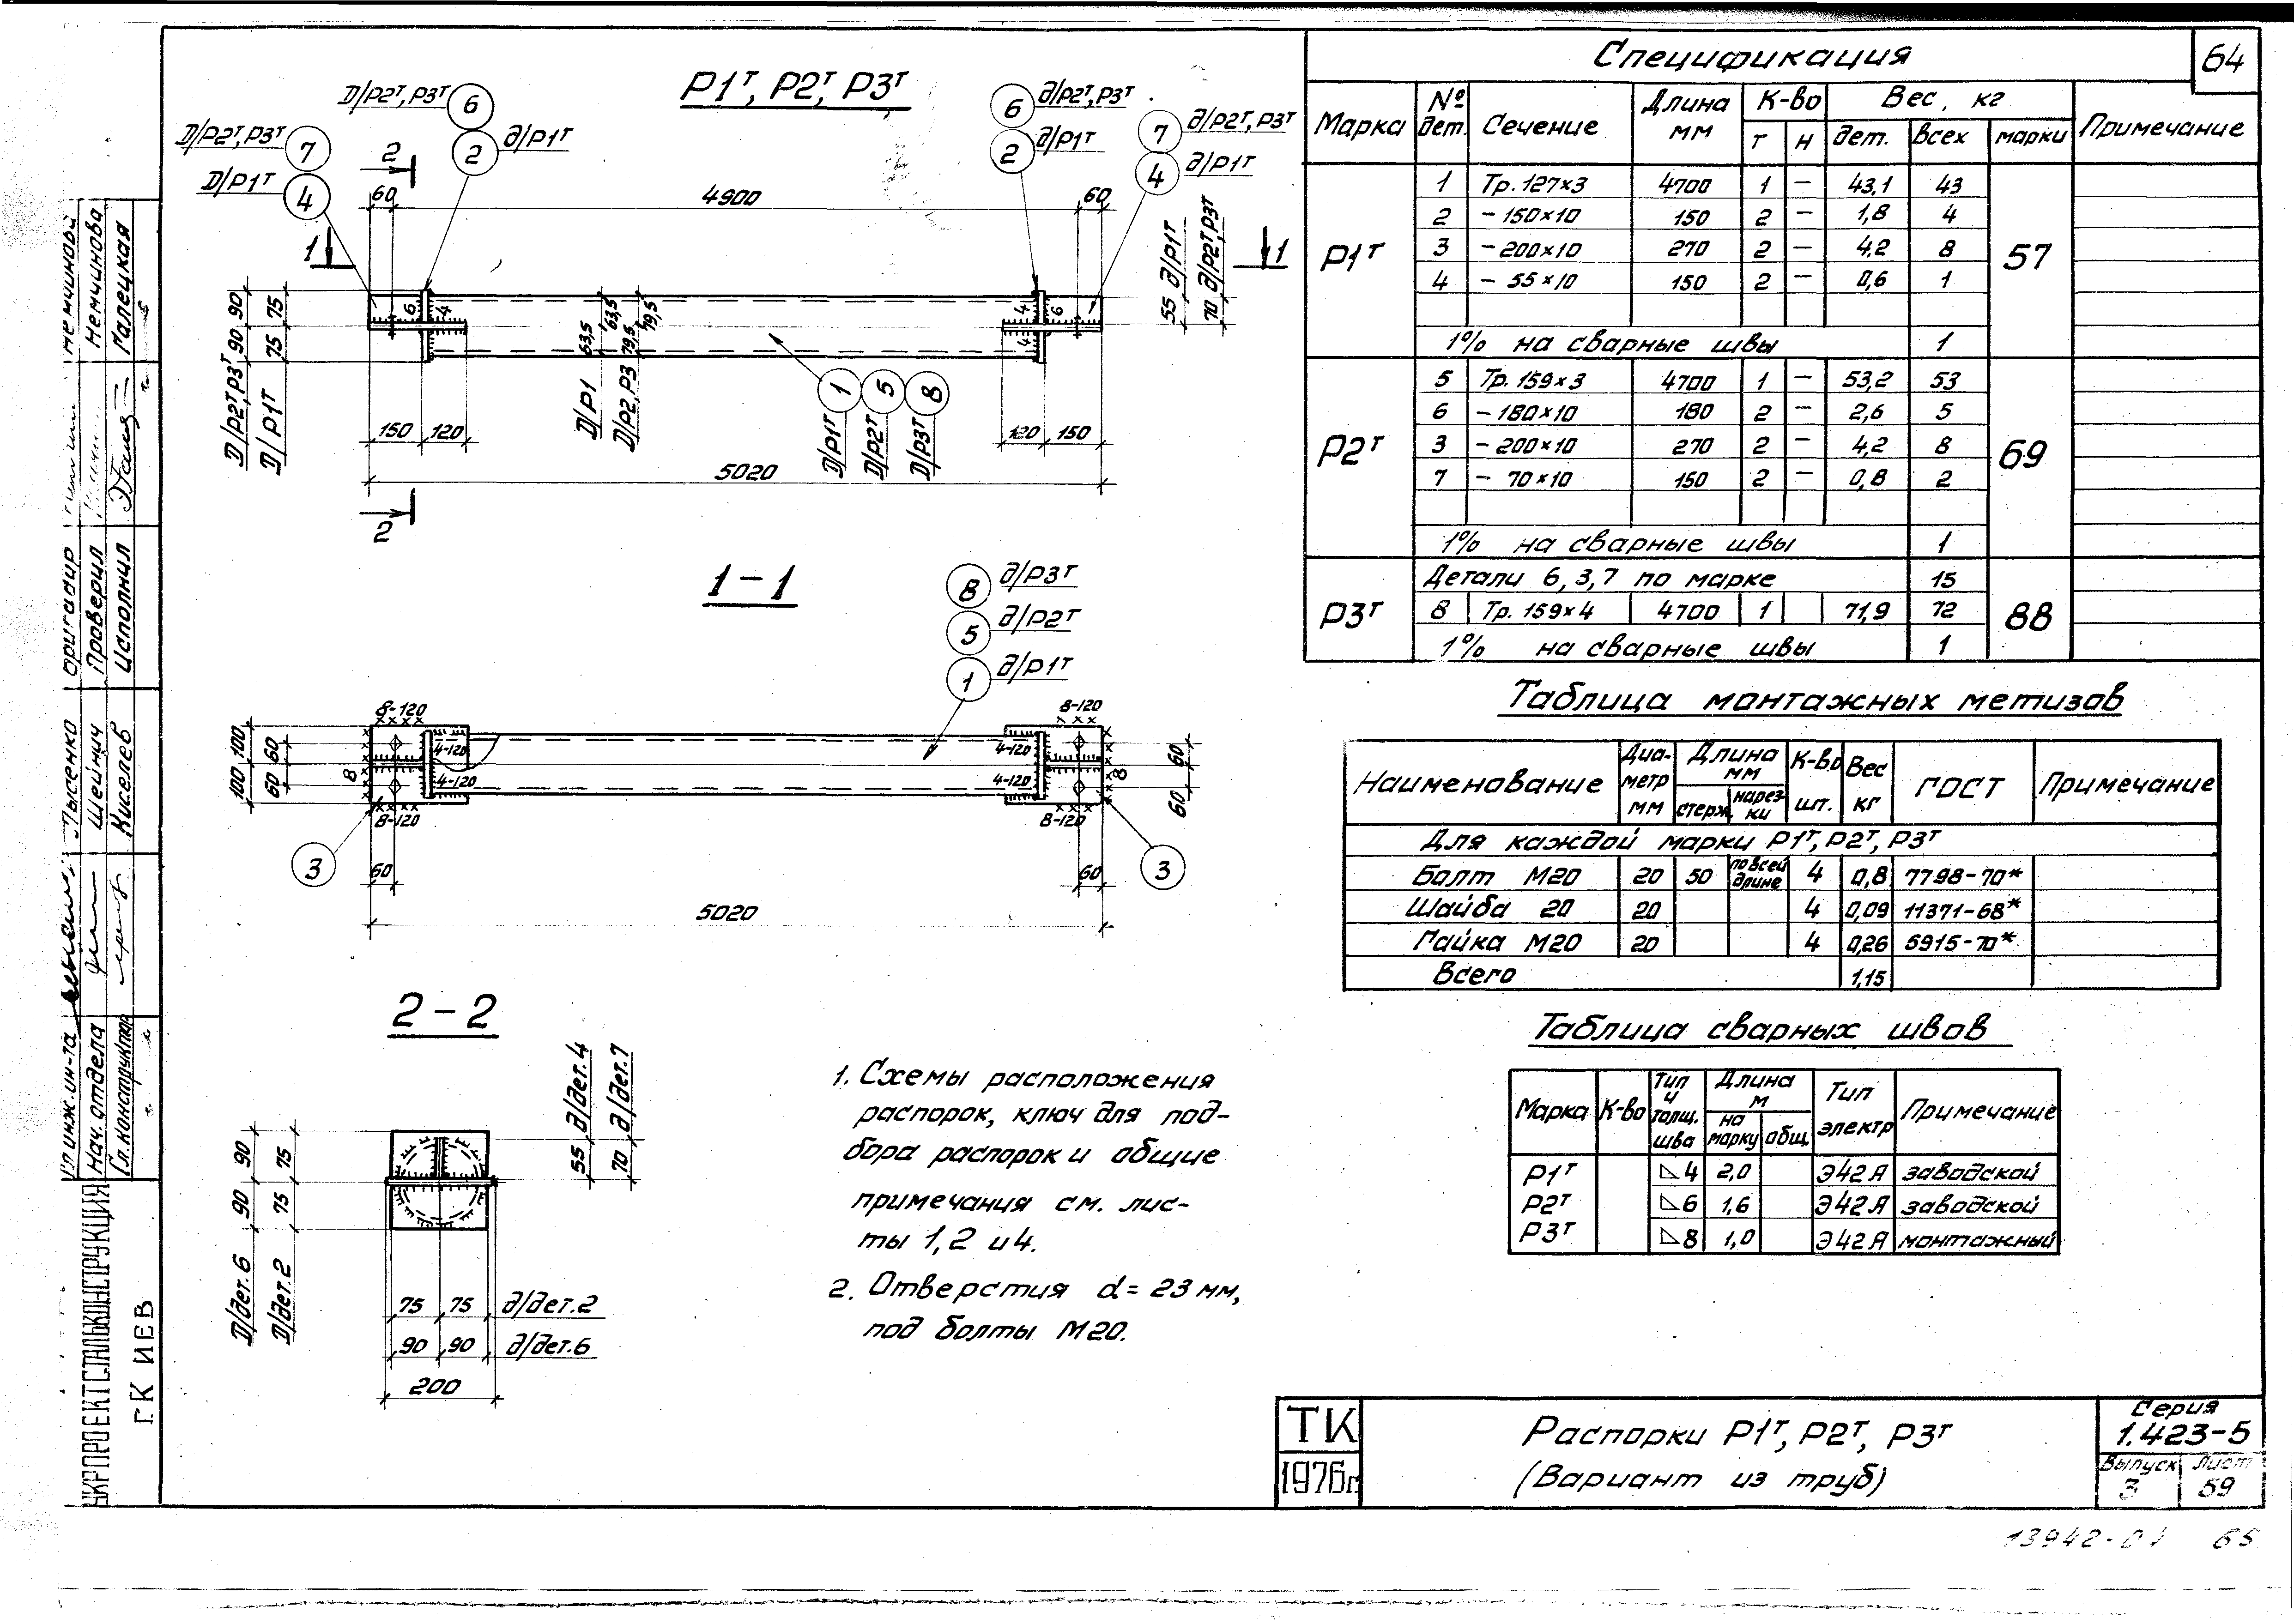 64
Р1т, Р2т, Р3т
Д/Р2т,Р3т 6
Д/Р2т,Р3т 7
2 д/Р1т
Д/Р1т 4
2
6 д/Р2т,Р3т
2 д/Р1т
7 д/Р2т,Р3т
4 д/Р1т
60 4900 60
1 1
55 д/Р1т
70 д/Р2т,Р3т
90 90 Д/Р2т,Р3т
75 75 Д/Р1т
6 4 4 4 6
63,5 63,5 Д/Р1
79,5 79,5 Д/Р2,Р3
1 5 8
Д/Р1т Д/Р2т Д/Р3т
150 120 120 150
5020
2
1-1
8 д/Р3т
5 д/Р2т
1 д/Р1т
8-120 8-120
100 100 60 60
4-120 4-120
4-120 4-120
8 8
60 60
8-120 8-120
3 3
60 60
5020
2-2
55 д/дет.4
70 д/дет.7
90 90 Д/дет.6
75 75 Д/дет.2
75 75 д/дет.2
90 90 д/дет.6
200
1. Схемы расположения
распорок, ключ для под-
бора распорок и общие
примечания см. лис-
ты 1,2 и 4.
2. Отверстия d=23 мм,
под болты М20.
Спецификация
Марка № дет. Сечение Длина мм К-во Вес, кг Примечание
т н дет. всех марки
Р1т 57
1 Тр.127×3 4700 1 – 43,1 43
2 –150×10 150 2 – 1,8 4
3 –200×10 270 2 – 4,2 8
4 – 55×10 150 2 – 0,6 1
1% на сварные швы 1
Р2т 69
5 Тр.159×3 4700 1 – 53,2 53
6 –180×10 180 2 – 2,6 5
3 –200×10 270 2 – 4,2 8
7 – 70×10 150 2 – 0,8 2
1% на сварные швы 1
Р3т 88
Детали 6,3,7 по марке 15
8 Тр.159×4 4700 1 71,9 72
1% на сварные швы 1
Таблица монтажных метизов
Наименование Диа-метр мм Длина мм К-во шт. Вес кг ГОСТ Примечание
стерж. нарез-ки
Для каждой марки Р1т, Р2т, Р3т
Болт М20 20 50 по всей длине 4 0,8 7798-70*
Шайба 20 20 4 0,09 11371-68*
Гайка М20 20 4 0,26 5915-70*
Всего 1,15
Таблица сварных швов
Марка К-во Тип и толщ. шва Длина м Тип электр Примечание
на марку общ.
Р1т ⊿4 2,0 Э42А заводской
Р2т ⊿6 1,6 Э42А заводской
Р3т ⊿8 1,0 Э42А монтажный
ТК
1976г
Распорки Р1т, Р2т, Р3т
(Вариант из труб)
Серия
1.423-5
Выпуск Лист
3 59
65
Гл.инж.ин-та Лысенко
Нач. отдела Шейнич
Гл.конструктор Киселев
Бригадир Немчинова
Проверил Немчинова
Исполнил Галецкая
УКРПРОЕКТСТАЛЬКОНСТРУКЦИЯ
Г. КИЕВ